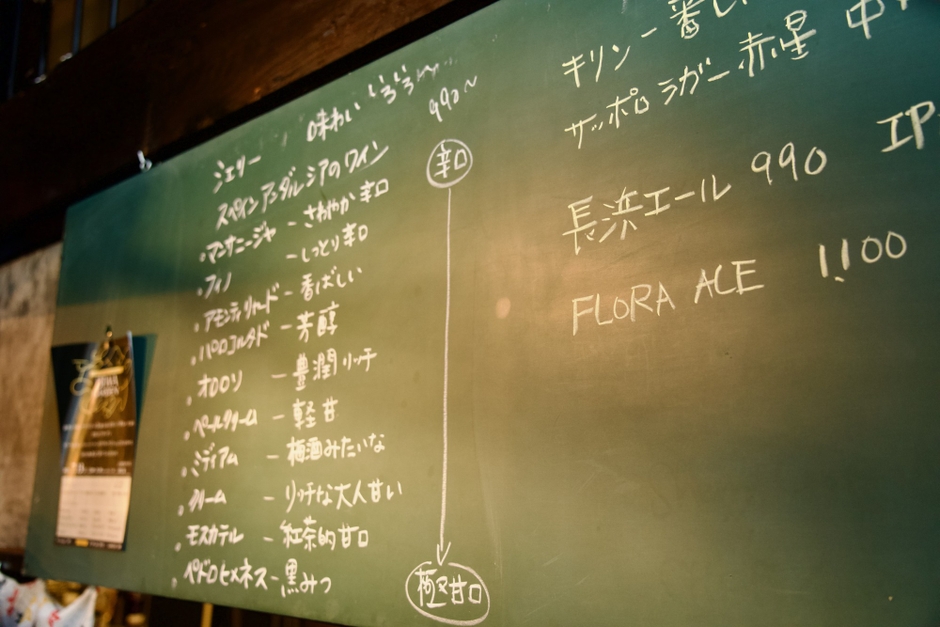 シェリー 味わいいろいろ 990〜
スペインアンダルシアのワイン
辛口
・マンサニージャ - さわやか辛口
・フィノ - しっとり辛口
・アモンティリャード - 香ばしい
・パロコルタド - 芳醇
・オロロソ - 豊潤リッチ
・ペールクリーム - 軽甘
・ミディアム - 梅酒みたいな
・クリーム - リッチな大人甘い
・モスカテル - 紅茶的甘口
・ペドロヒメネス - 黒みつ
極甘口
キリン一番し
サッポロラガー赤星 中
長浜エール 990 IP
FLORA ACE 1,100